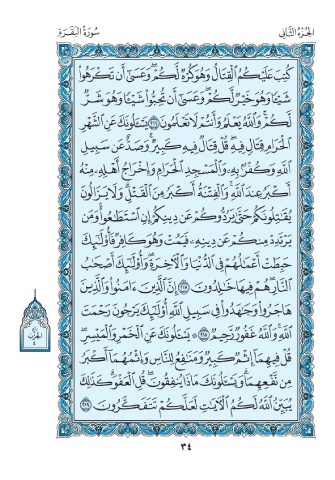 الجزء الثاني
سورة البقرة
كُتِبَ عَلَيْكُمُ الْقِتَالُ وَهُوَ كُرْهٌ لَكُمْ وَعَسَى أَن تَكْرَهُوا
شَيْئًا وَهُوَ خَيْرٌ لَكُمْ وَعَسَى أَن تُحِبُّوا شَيْئًا وَهُوَ شَرٌّ
لَكُمْ وَاللَّهُ يَعْلَمُ وَأَنتُمْ لَا تَعْلَمُونَ ٢١٦ يَسْأَلُونَكَ عَنِ الشَّهْرِ
الْحَرَامِ قِتَالٍ فِيهِ قُلْ قِتَالٌ فِيهِ كَبِيرٌ وَصَدٌّ عَن سَبِيلِ
اللَّهِ وَكُفْرٌ بِهِ وَالْمَسْجِدِ الْحَرَامِ وَإِخْرَاجُ أَهْلِهِ مِنْهُ
أَكْبَرُ عِندَ اللَّهِ وَالْفِتْنَةُ أَكْبَرُ مِنَ الْقَتْلِ وَلَا يَزَالُونَ
يُقَاتِلُونَكُمْ حَتَّى يَرُدُّوكُمْ عَن دِينِكُمْ إِنِ اسْتَطَاعُوا وَمَن
يَرْتَدِدْ مِنكُمْ عَن دِينِهِ فَيَمُتْ وَهُوَ كَافِرٌ فَأُولَئِكَ
حَبِطَتْ أَعْمَالُهُمْ فِي الدُّنْيَا وَالْآخِرَةِ وَأُولَئِكَ أَصْحَابُ
النَّارِ هُمْ فِيهَا خَالِدُونَ ٢١٧ إِنَّ الَّذِينَ آمَنُوا وَالَّذِينَ
هَاجَرُوا وَجَاهَدُوا فِي سَبِيلِ اللَّهِ أُولَئِكَ يَرْجُونَ رَحْمَتَ
اللَّهِ وَاللَّهُ غَفُورٌ رَحِيمٌ ٢١٨ ۞ يَسْأَلُونَكَ عَنِ الْخَمْرِ وَالْمَيْسِرِ
قُلْ فِيهِمَا إِثْمٌ كَبِيرٌ وَمَنَافِعُ لِلنَّاسِ وَإِثْمُهُمَا أَكْبَرُ
مِن نَفْعِهِمَا وَيَسْأَلُونَكَ مَاذَا يُنفِقُونَ قُلِ الْعَفْوَ كَذَلِكَ
يُبَيِّنُ اللَّهُ لَكُمُ الْآيَاتِ لَعَلَّكُمْ تَتَفَكَّرُونَ ٢١٩
٣٤